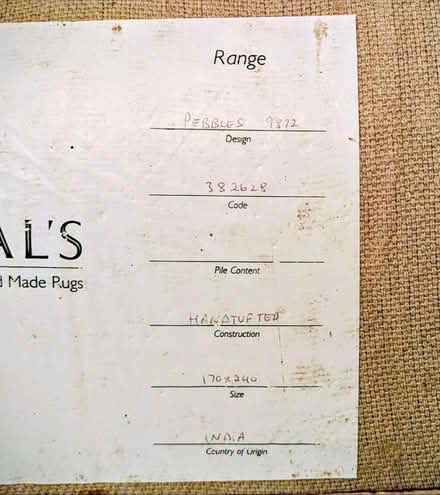 Range
PEBBLES 9872
Design
382628
Code
AL'S
Pile Content
d Made Rugs
HANDTUFTED
Construction
170x240
Size
INDIA
Country of Origin